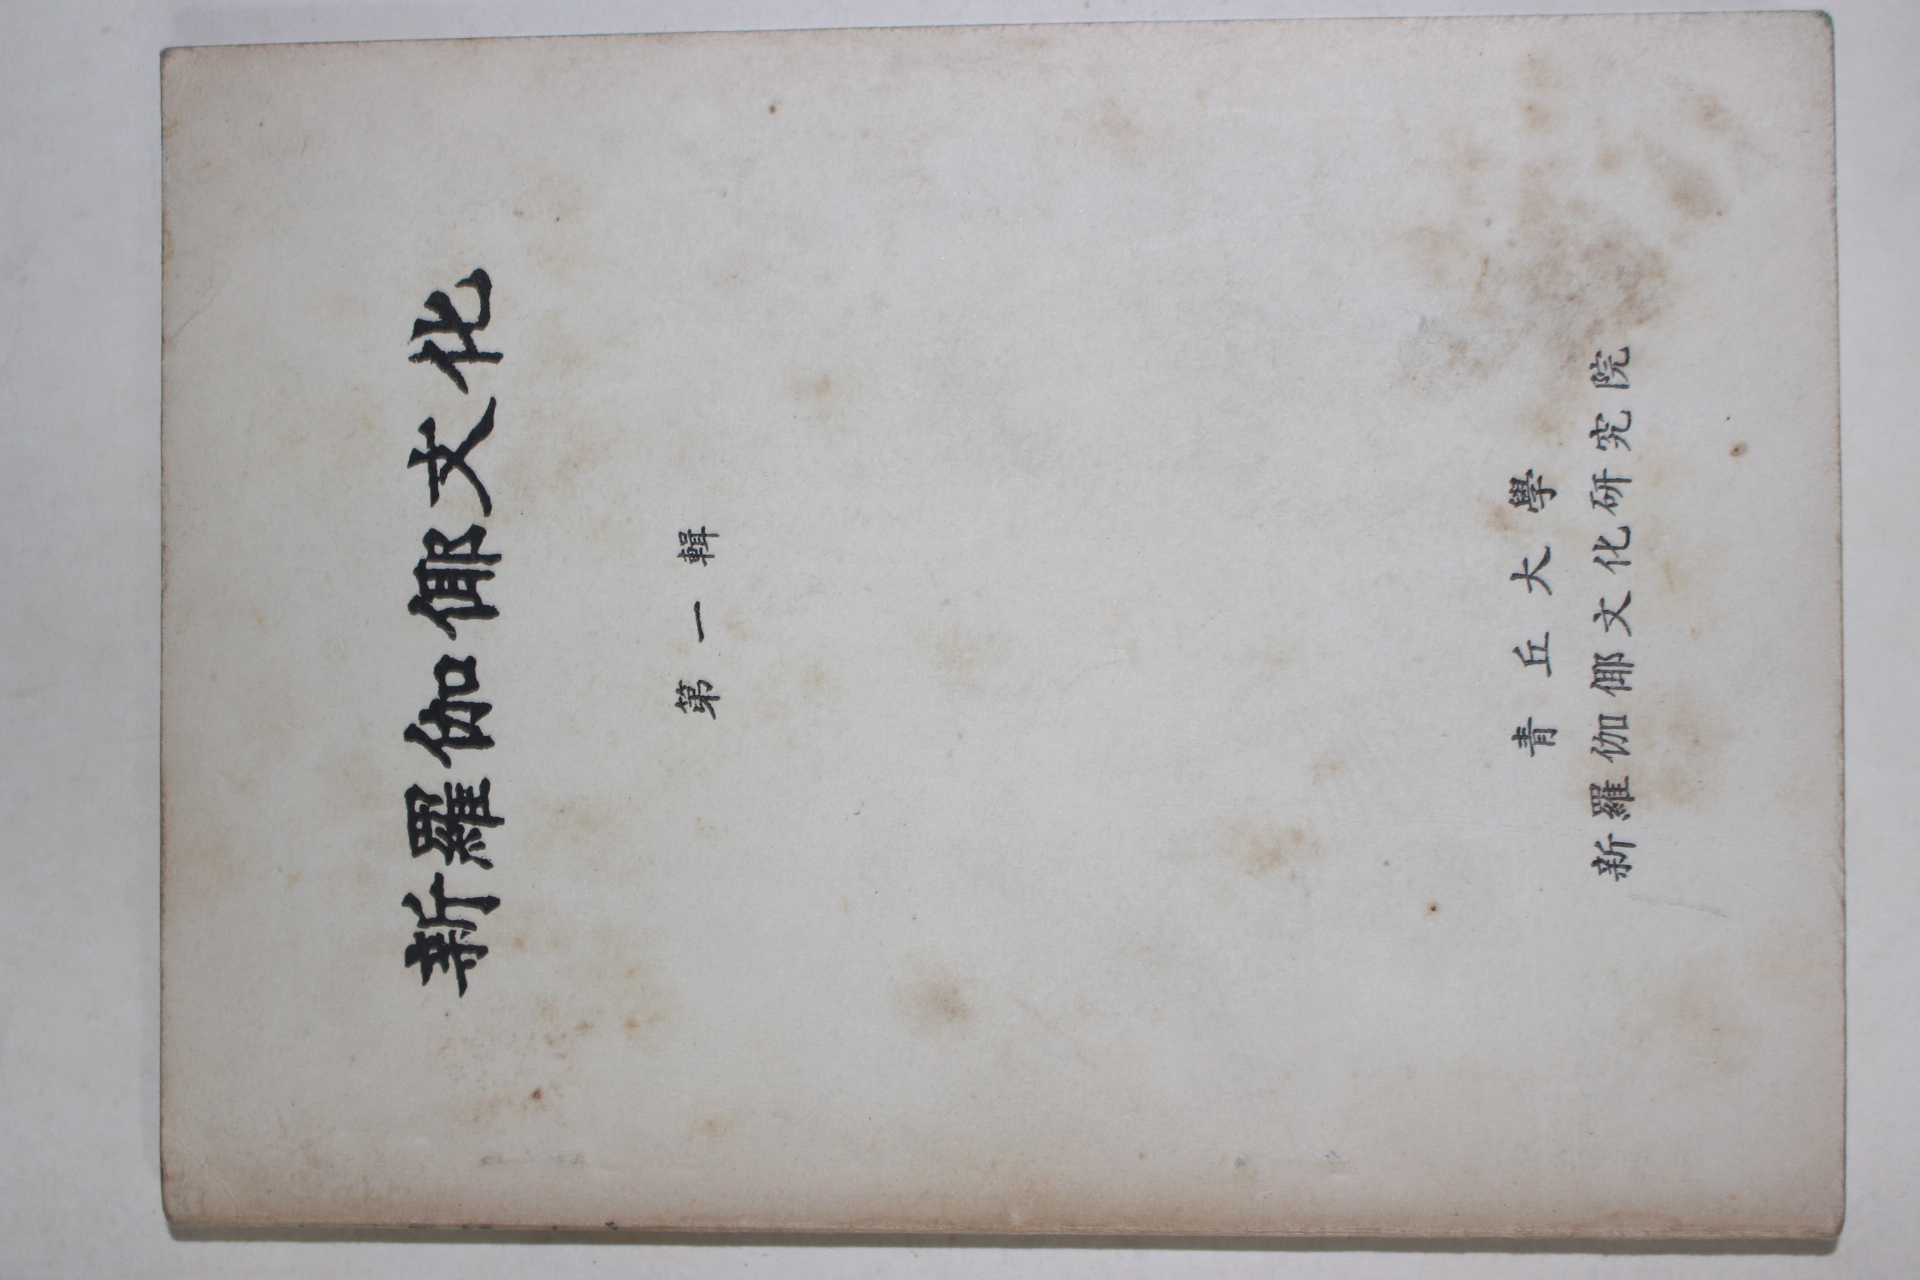 新羅伽倻文化
第一輯
靑丘大學
新羅伽倻文化硏究院